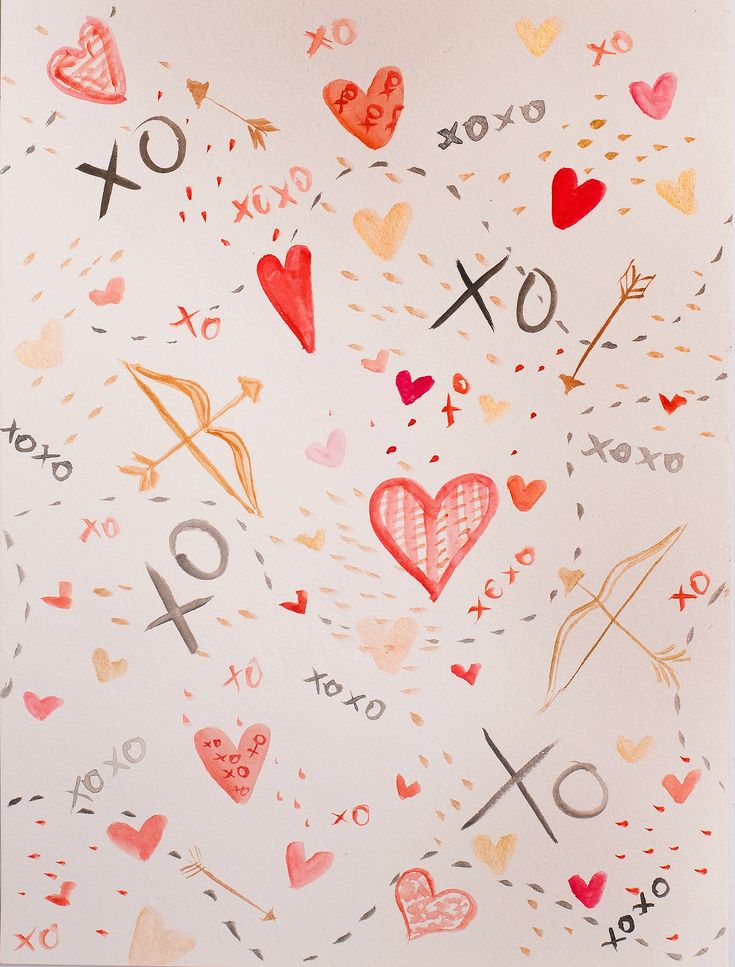 XO
XO
XO
XO
XO
XOXO
XO
XOXO
XO
XO
XO
XOXO
XOXO
XO
XO
XOXO
XO
XO
XOXO
XO
XO
XO
XO
XO
XOXO
XO
XO
XOXO
XO